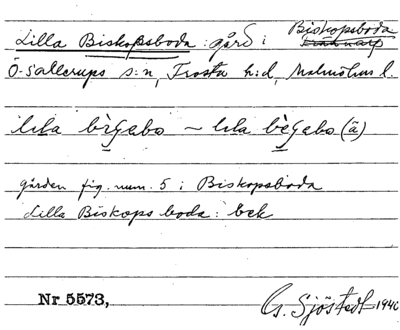 Lilla Biskopsboda: gård i Biskopsboda
Ö-Sallerups s:n, Frosta h:d, Malmöhus l.
gården fig. num. 5 i Biskopsboda
Lilla Biskopsboda: bek
Nr 5573,
G. Sjöstedt 1940